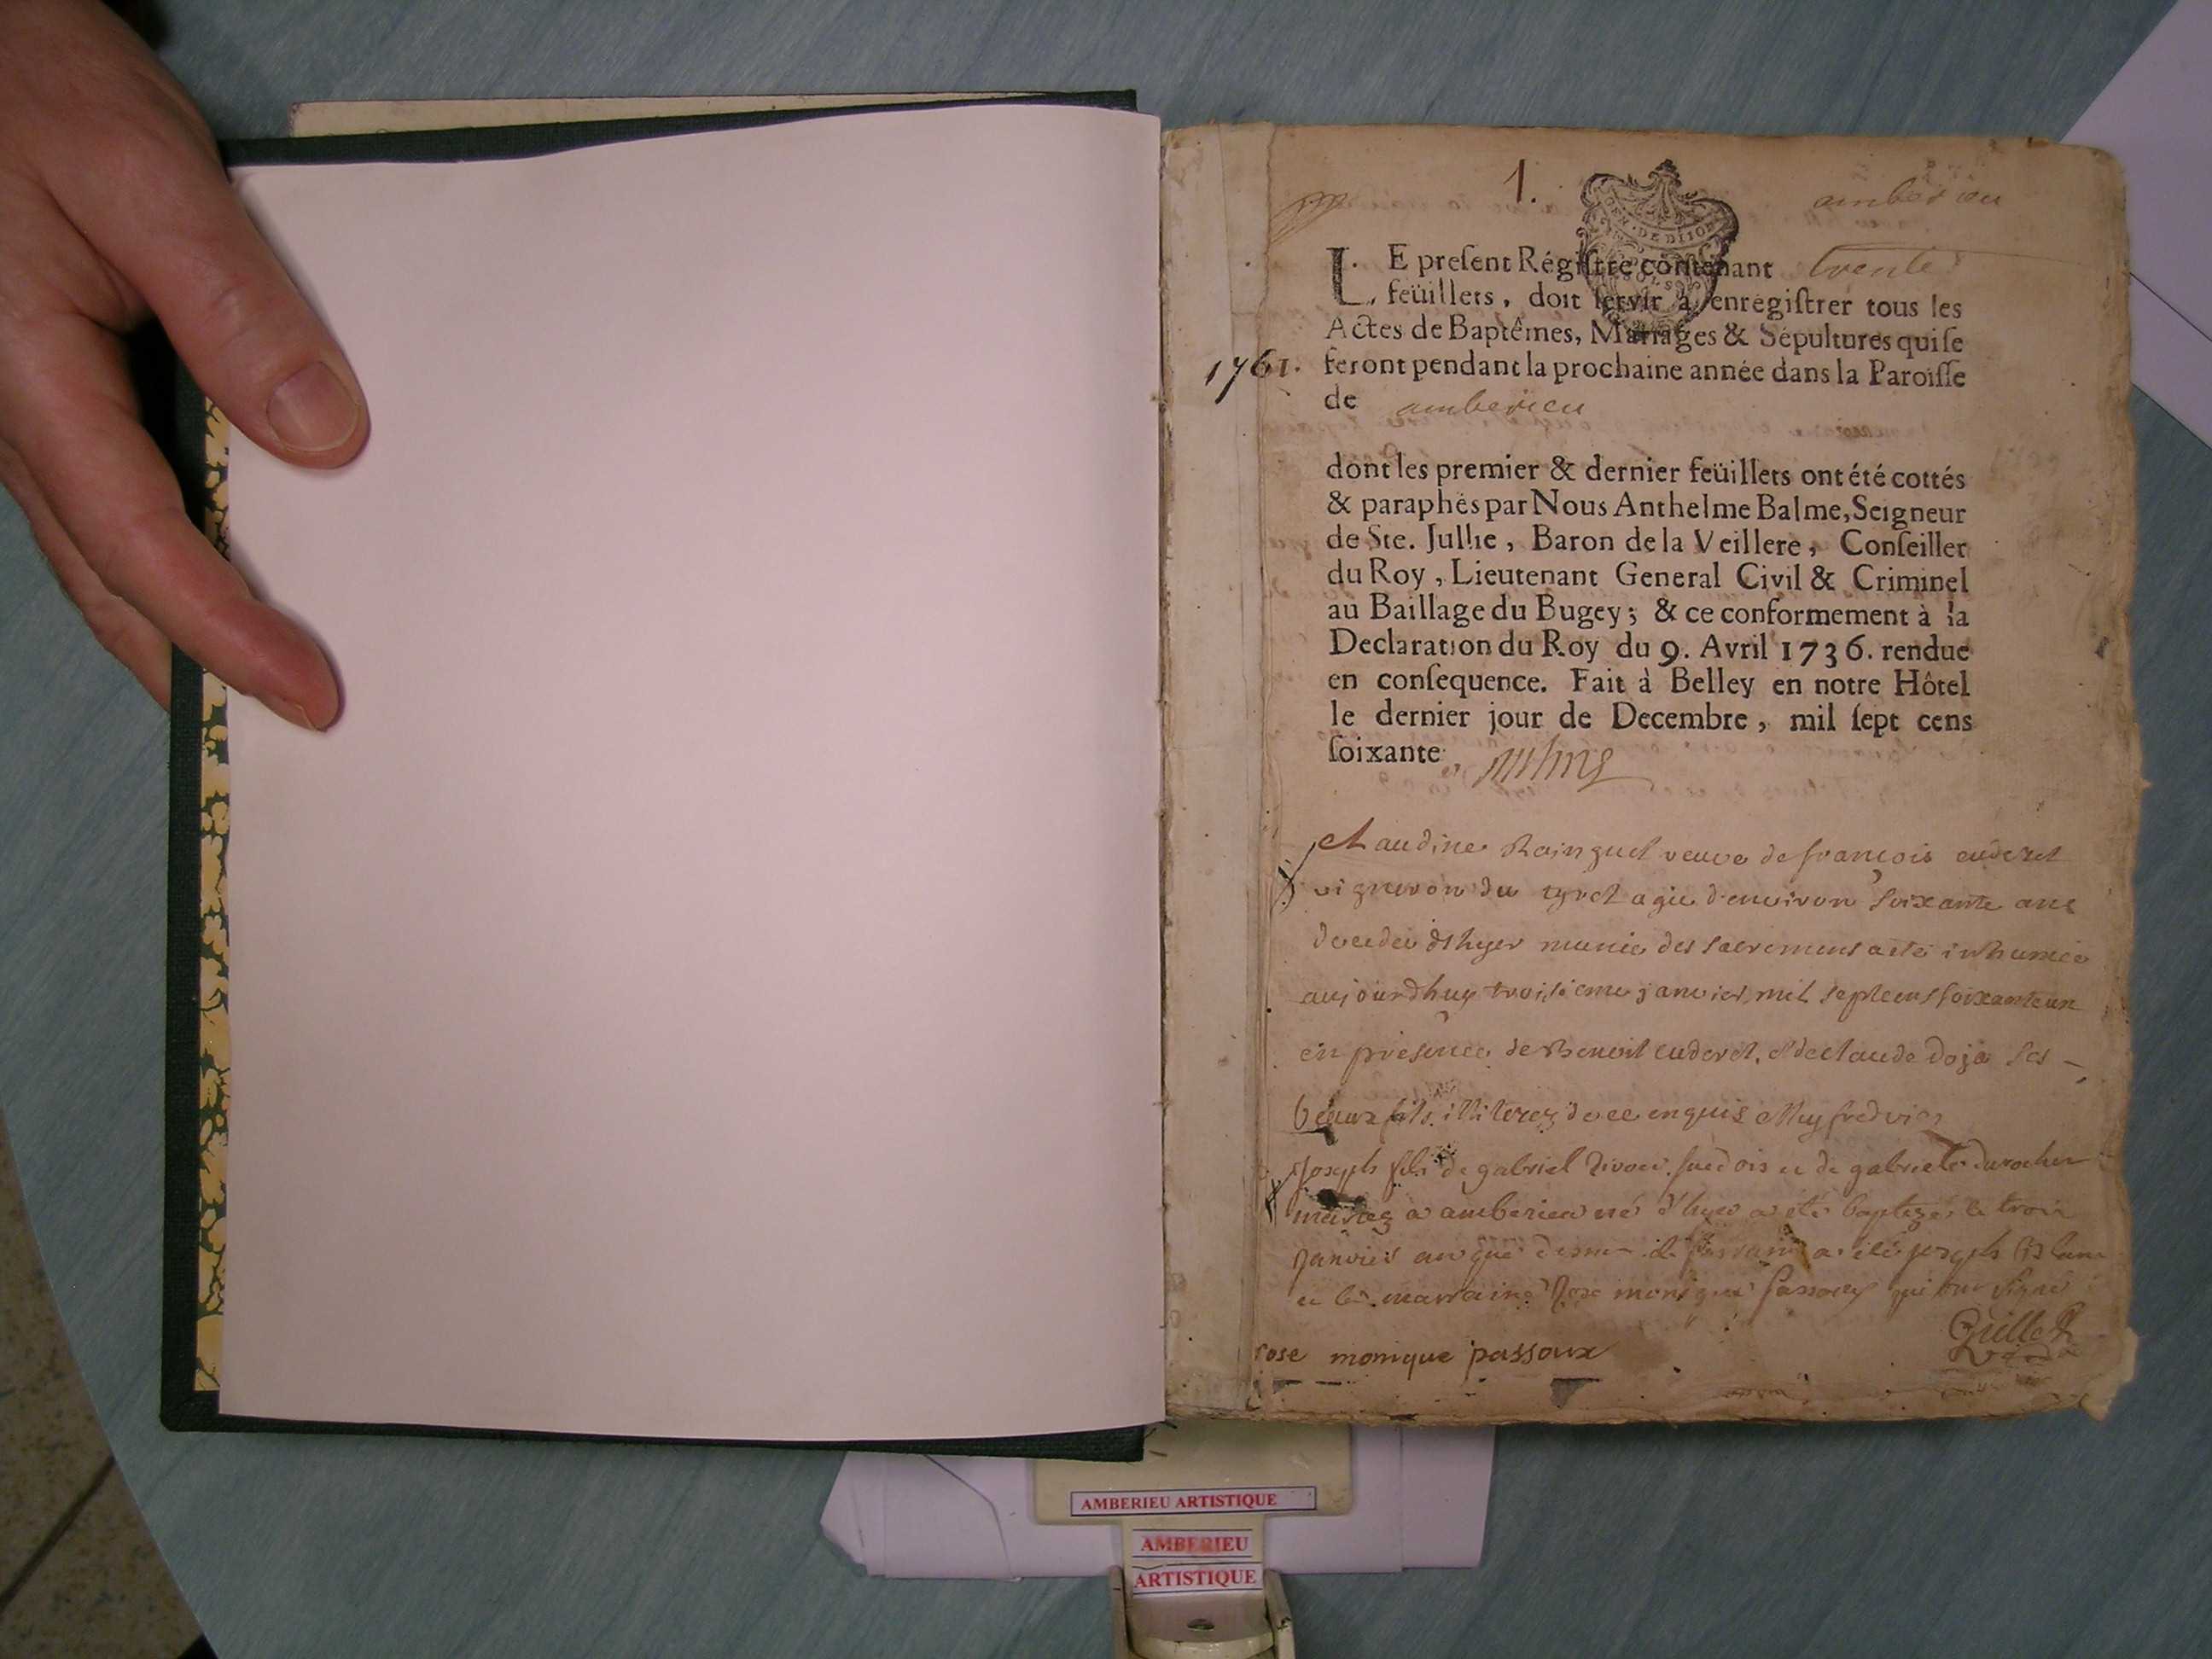 1.
amberieu
GEN. DE DIJON
LE presení Régiſtre contenant trente
feüillets, doit ſervir à enregiſtrer tous les
Actes de Baptêmes, Mariages & Sépultures qui ſe
1761. feront pendant la prochaine année dans la Paroiſſe
de amberieu
dont les premier & dernier feüillets ont été cottés
& paraphés par Nous Anthelme Balme, Seigneur
de Ste. Jullie, Baron de la Veillere, Conſeiller
du Roy, Lieutenant General Civil & Criminel
au Baillage du Bugey; & ce conformement à la
Declaration du Roy du 9. Avril 1736. rendue
en conſequence. Fait à Belley en notre Hôtel
le dernier jour de Decembre, mil ſept cens
ſoixante.
Claudine veuve de françois cuderet
vigneron du tyret agée d'environ soixante ans
decedée d'hyer munie des sacremens a eté inhumée
aujourdhuy troisieme janvier mil septcens soixante un
en presence de Benoit cuderet, et de claude doja ses
beaux fils illiterez de ce enquis
Joseph fils de gabriel suedois et de gabriele durocher
mariez a amberieu né d'hyer a été baptizé le trois
janvier an que dessus le parrain a été joseph
et la marraine Rose monique passoux qui ont signé
rose monique passoux
AMBERIEU ARTISTIQUE
AMBERIEU
ARTISTIQUE